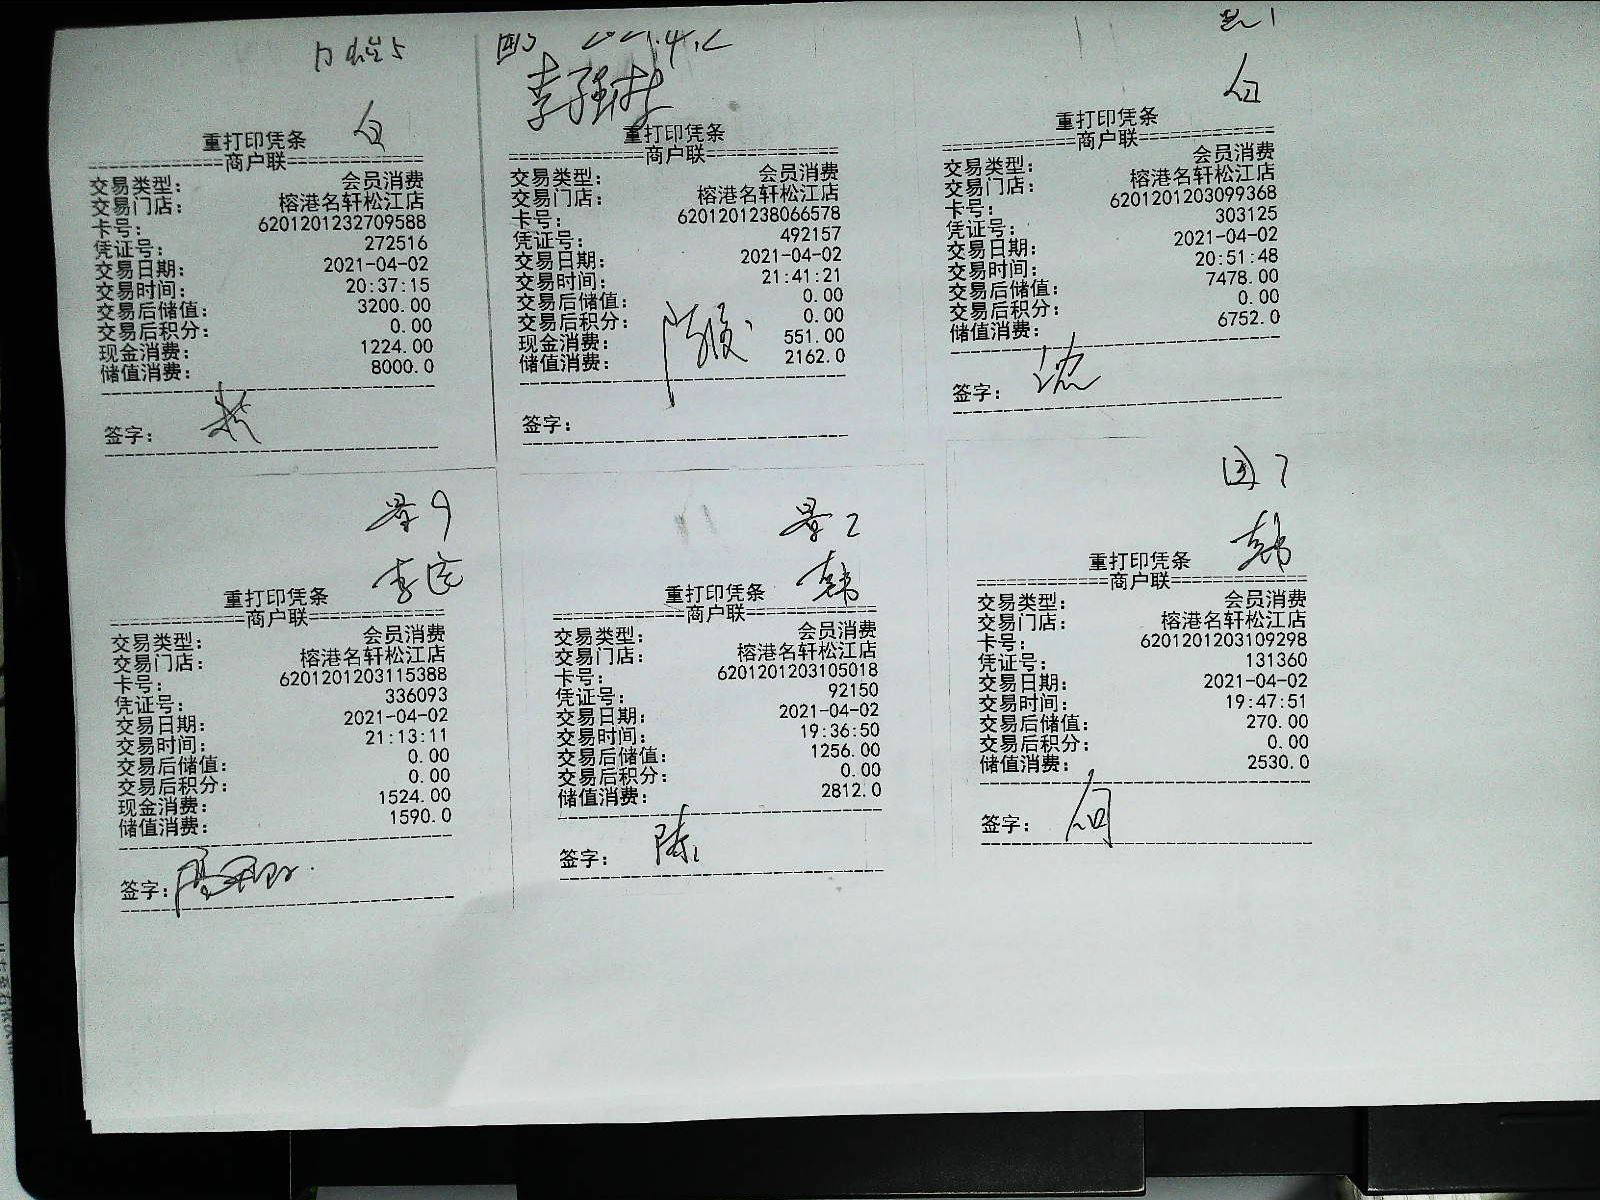 白
重打印凭条
================商户联================
交易类型： 会员消费
交易门店： 榕港名轩松江店
卡号： 6201201232709588
凭证号： 272516
交易日期： 2021-04-02
交易时间： 20:37:15
交易后储值： 3200.00
交易后积分： 0.00
现金消费： 1224.00
储值消费： 8000.0
签字：
重打印凭条
================商户联================
交易类型： 会员消费
交易门店： 榕港名轩松江店
卡号： 6201201238066578
凭证号： 492157
交易日期： 2021-04-02
交易时间： 21:41:21
交易后储值： 0.00
交易后积分： 0.00
现金消费： 551.00
储值消费： 2162.0
签字：
白
重打印凭条
================商户联================
交易类型： 会员消费
交易门店： 榕港名轩松江店
卡号： 6201201203099368
凭证号： 303125
交易日期： 2021-04-02
交易时间： 20:51:48
交易后储值： 7478.00
交易后积分： 0.00
储值消费： 6752.0
签字： 沈
景9
重打印凭条
================商户联================
交易类型： 会员消费
交易门店： 榕港名轩松江店
卡号： 6201201203115388
凭证号： 336093
交易日期： 2021-04-02
交易时间： 21:13:11
交易后储值： 0.00
交易后积分： 0.00
现金消费： 1524.00
储值消费： 1590.0
签字：
景2
韩
重打印凭条
================商户联================
交易类型： 会员消费
交易门店： 榕港名轩松江店
卡号： 6201201203105018
凭证号： 92150
交易日期： 2021-04-02
交易时间： 19:36:50
交易后储值： 1256.00
交易后积分： 0.00
储值消费： 2812.0
签字： 陈
国7
韩
重打印凭条
================商户联================
交易类型： 会员消费
交易门店： 榕港名轩松江店
卡号： 6201201203109298
凭证号： 131360
交易日期： 2021-04-02
交易时间： 19:47:51
交易后储值： 270.00
交易后积分： 0.00
储值消费： 2530.0
签字： 何